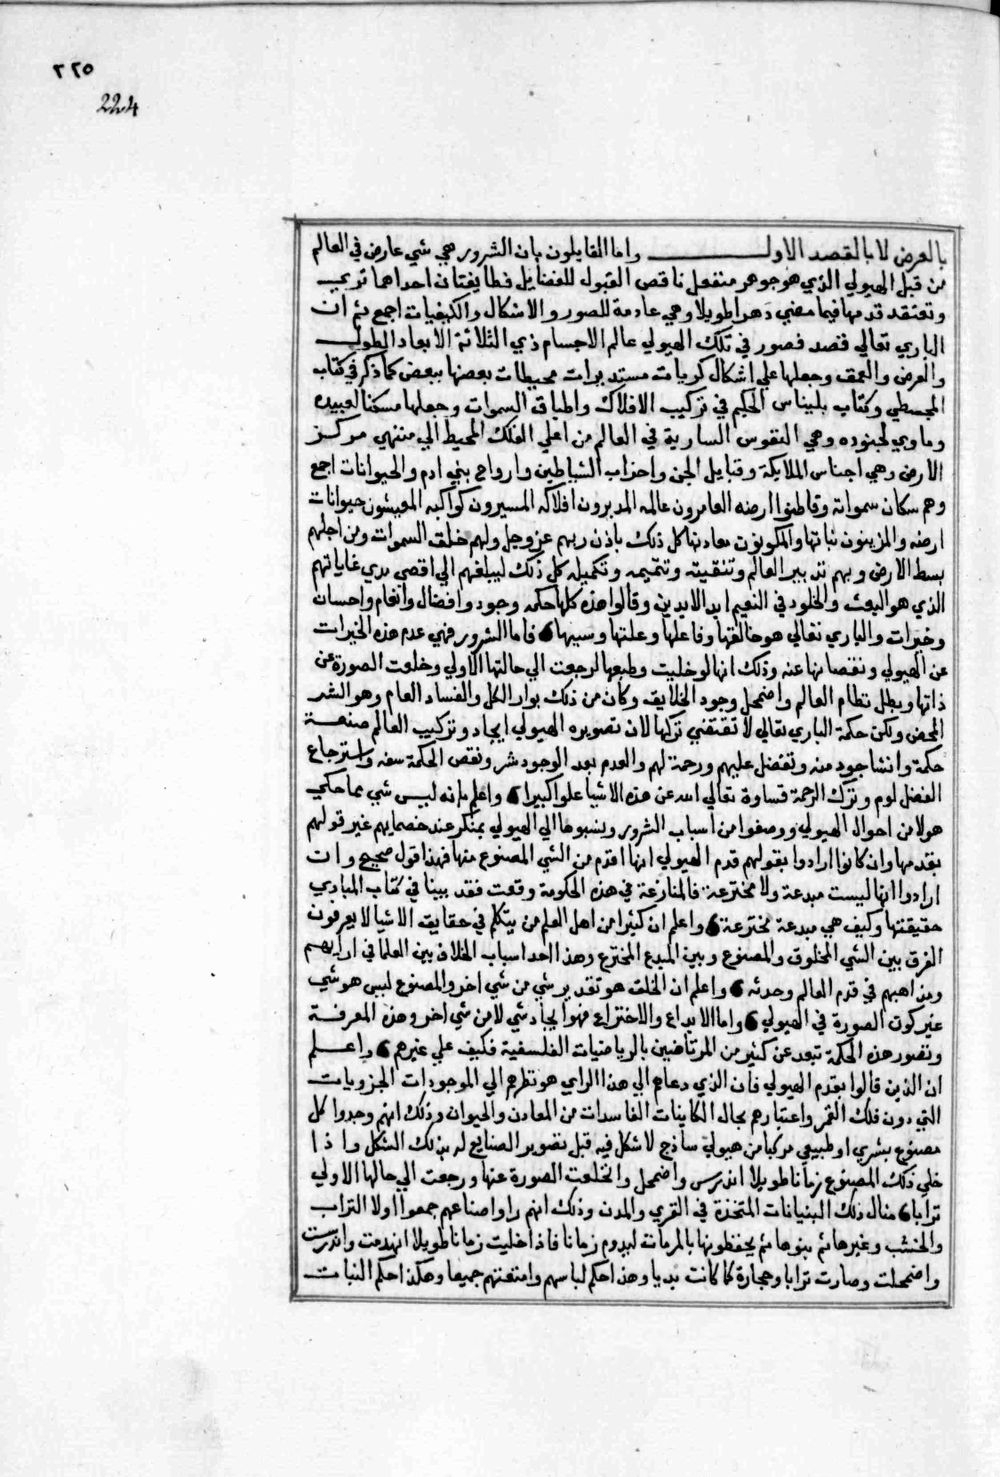 ٢٢٥
224
بالعرض لا بالقصد الاول واما القايلون بان الشرور هي شي عارض في العالم
من قبل الهيولي الذي هو جوهر منفعل ناقص القبول للفضايل فطايفتان احداهما تري
وتعتقد قدمها فيما مضي دهرا طويلا وهي عادمة للصور والاشكال والكيفيات اجمع ثم ان
الباري تعالي قصد فصور في تلك الهيولي عالم الاجسام ذي الثلاثة الابعاد الطول
والعرض والعمق وجعلها علي اشكال كريات مستديرات محيطات بعضها ببعض كما ذكر في كتاب
المجسطي وكتاب بليناس الحكيم في تركيب الافلاك واطباق السموات وجعلها مسكنا لعبيده
وماوي لجنوده وهي النفوس السارية في العالم من اعلي الفلك المحيط الي منتهي مركز
الارض وهي اجناس الملايكة وقبايل الجن واحزاب الشياطين وارواح بني ادم والحيوانات اجمع
وهم سكان سمواته وقاطنوا ارضه العامرون عالمه المدبرون افلاكه المسيرون كواكبه المعيشون حيوانات
ارضه والمزينون نباتها والمكونون معادنها كل ذلك باذن ربهم عز وجل ولهم خلق السموات ومن اجلهم
بسط الارض وبهم تدبير العالم وتنقيته وتتميمه وتكميله كل ذلك ليبلغهم الي اقصي مدي غاياتهم
الذي هو البعث والخلود في النعيم ابد الابدين وقالوا هذه كلها حكمه وجود وافضال وانعام واحسان
وخيرات والباري تعالي هو خالقها وفاعلها وعلتها وسببها ٥ فاما الشرور فهي عدم هذه الخيرات
عن الهيولي ونقصانها عنه وذلك انها لو خليت وطبعها لرجعت الي حالتها الاولي وخلعت الصورة عن
ذاتها وبطل نظام العالم واضمحل وجود الخلايقه وكان من ذلك بوار الكل والفساد العام وهو الشر
المحض ولكن حكمة الباري تعالي لا تقتضي تركها لان تصويره الهيولي ايجاد وتركيب العالم صنعة
حكمة وانشا جود منه وتفضل عليهم ورحمة لهم والعدم بعد الوجود شر ونقص الحكمة سفه واسترجاع
الفضل لوم وترك الرحمة قساوة تعالي الله عن هذه الاشيا علوا كبيرا ٥ واعلم بانه ليس شي مما حكي
هولا من احوال الهيولي ووصفوا من اسباب الشرور ونسبوها الي الهيولي بمنكر عند خصمايهم غير قولهم
بقدمها وان كانوا ارادوا بقولهم قدم الهيولي انها اقدم من الشي المصنوع منها فهذا قول صحيح وان
ارادوا انها ليست مبدعة ولا مخترعة فالمنازعة في هذه الحكومة وقعت فقد بينا في كتاب المبادي
حقيقتها وكيف هي مبدعة مخترعة ٥ واعلم ان كثيرا من اهل العلم من يتكلم في حقايق الاشيا لا يعرفون
الفرق بين الشي المخلوق والمصنوع وبين المبدع المخترع وهذا احد اسباب الخلاف بين العلما في ارايهم
ومذاهبهم في قدم العالم وحدثه ٥ واعلم ان الخلق هو تقدير شي من شي اخر والمصنوع ليس هو شي
غير كون الصورة في الهيولي ٥ واما الابداع والاختراع فهو ايجاد شي لا من شي اخر وهذه المعرفة
وتصور هذه الحكمة تبعد عن كثير من المرتاضين بالرياضيات الفلسفية فكيف علي غيرهم ٥ واعلم
ان الذين قالوا بقدم الهيولي فان الذي دعاهم الي هذا الراي هو نظرهم الي الموجودات الجزويات
التي دون فلك القمر واعتبارهم بحال الكاينات الفاسدات من المعادن والحيوان وذلك انهم وجدوا كل
مصنوع بشري او طبيعي مركبا من هيولي ساذج لا شكل فيه قبل تصوير الصانع له بذلك الشكل واذا
خلي ذلك المصنوع زمانا طويلا اندرس واضمحل وانخلعت الصورة عنها ورجعت الي حالها الاولي
ترابا ٥ مثال ذلك البنيانات المتخذة في القري والمدن وذلك انهم راوا صناعهم جمعوا اولا التراب
والخشب وغيرها ثم بنوها ثم يحفظونها بالمرمات ليدوم زمانا فاذا خليت زمانا طويلا انهدمت واندرست
واضمحلت وصارت ترابا وحجارة كما كانت بديا وهذا حكم لباسهم وامتعتهم جميعا وهكذا حكم النبات